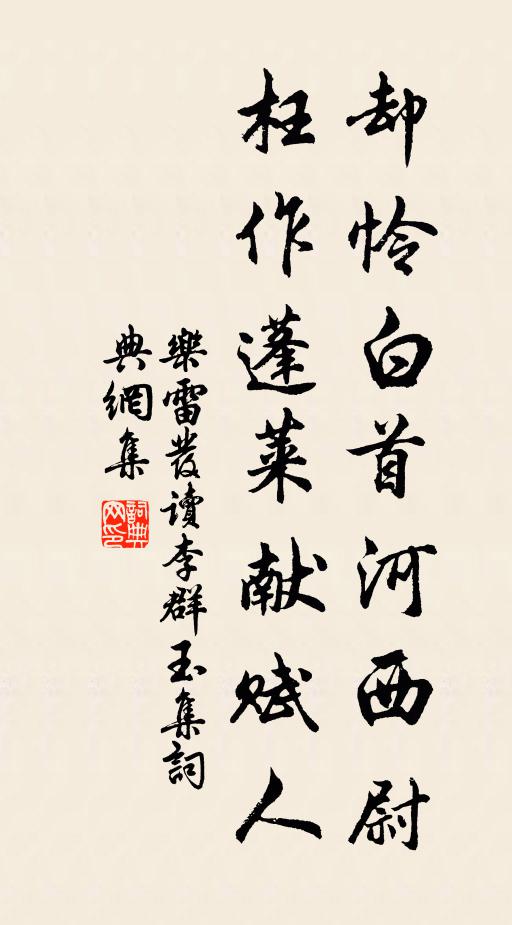 却怜白首河西尉
枉作蓬莱献赋人
樂雷發讀李群玉集詞
典網集
詞典网印